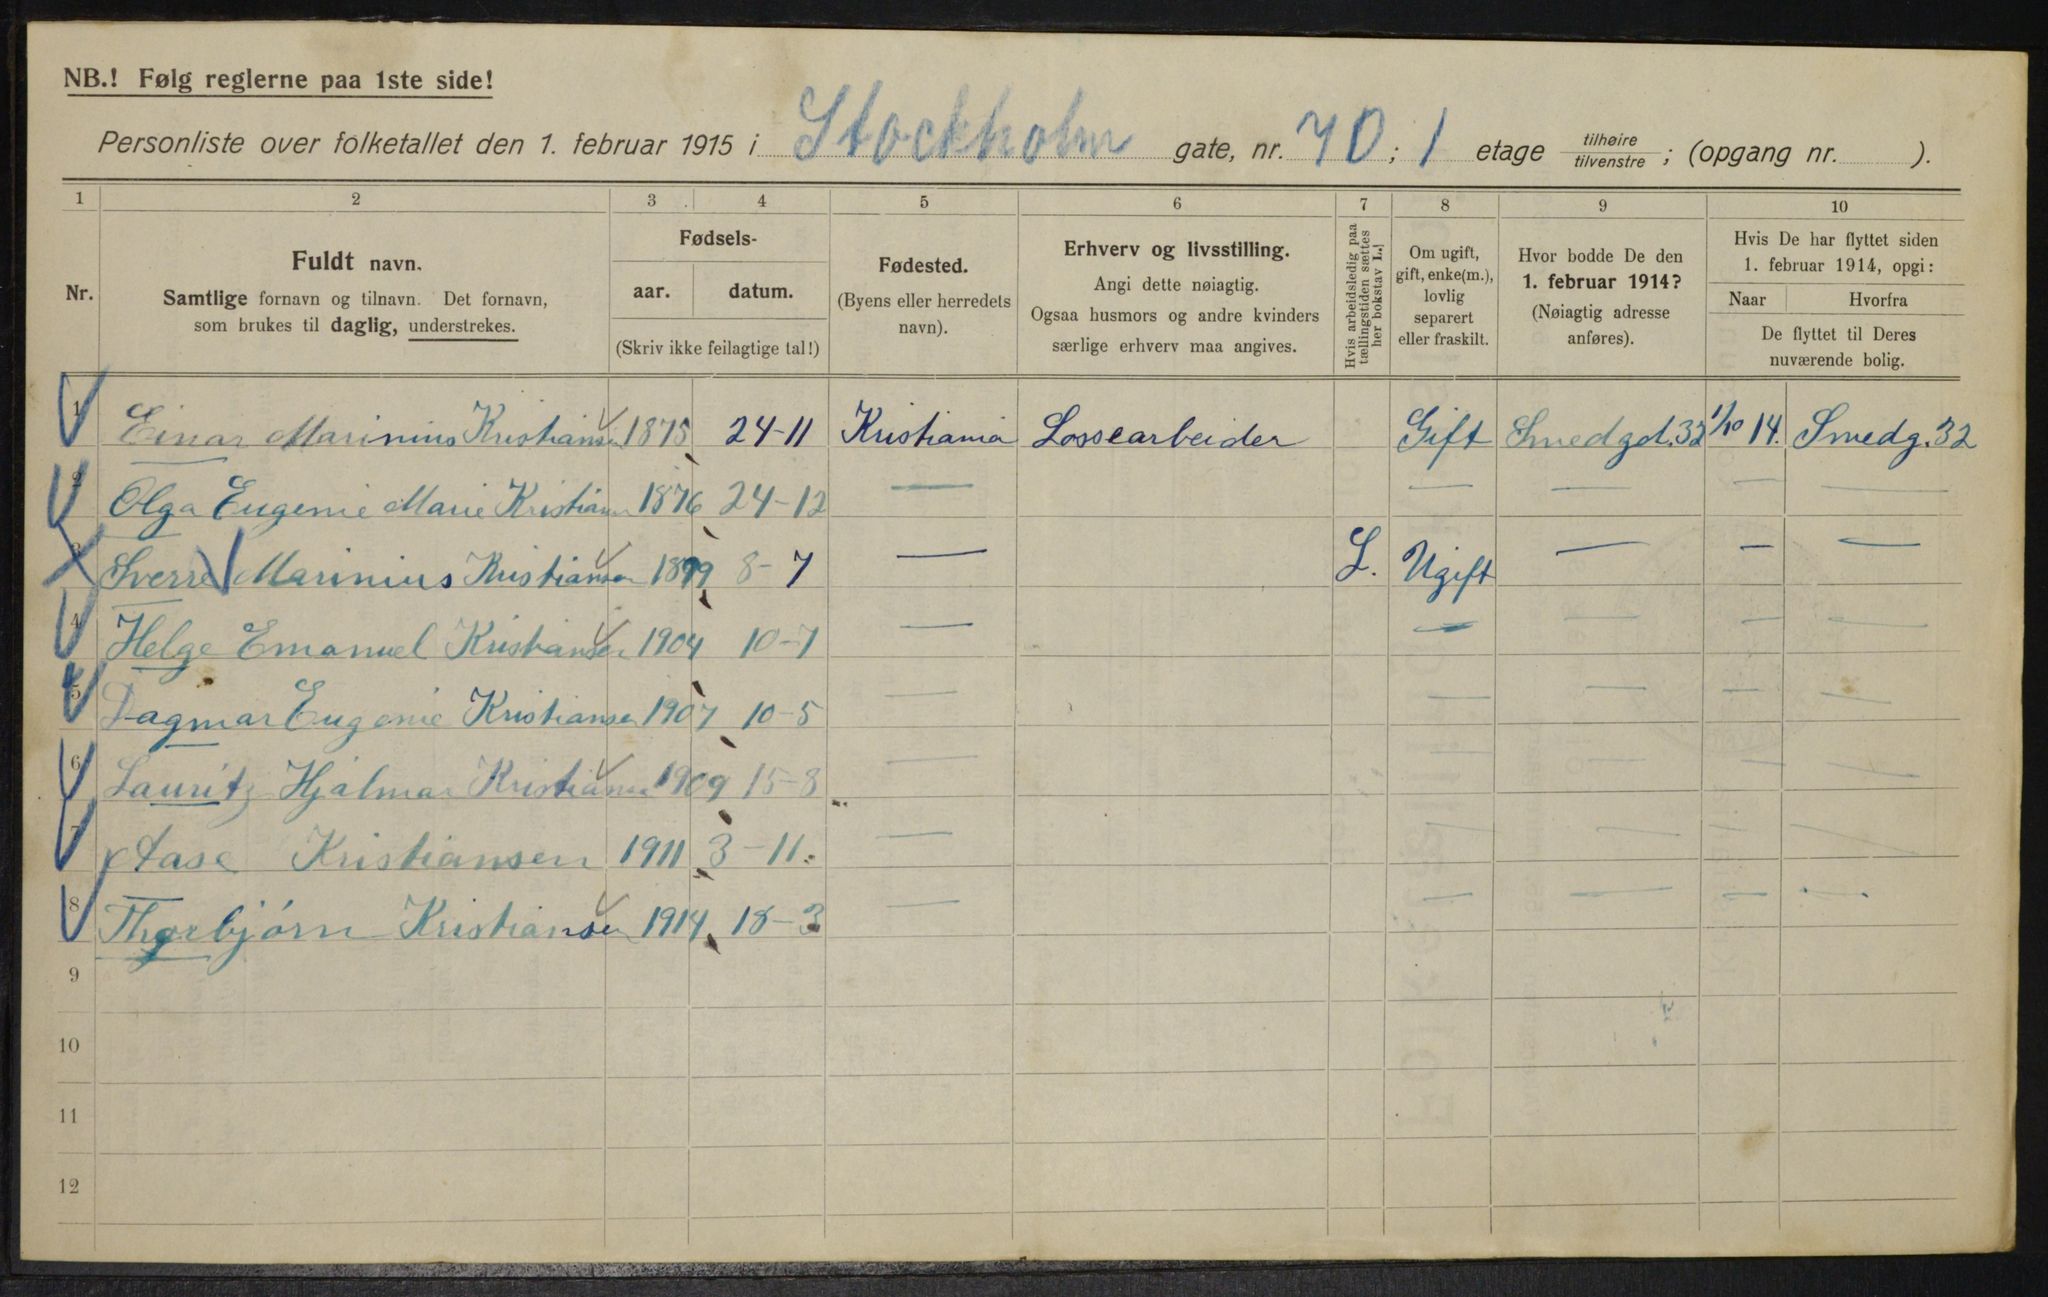 NB.! Følg reglerne paa 1ste side!
Personliste over folketallet den 1. februar 1915 i Stockholm gate, nr. 40; 1 etage tilhøire tilvenstre; (opgang nr. ).
1 2 3 4 5 6 7 8 9 10
Nr.
Fuldt navn.
Samtlige fornavn og tilnavn. Det fornavn,
som brukes til daglig, understrekes.
Fødsels-
aar. datum.
(Skriv ikke feilagtige tal!)
Fødested.
(Byens eller herredets
navn).
Erhverv og livsstilling.
Angi dette nøiagtig.
Ogsaa husmors og andre kvinders
særlige erhverv maa angives.
Hvis arbeidsledig paa
tællingstiden sættes
her bokstav L.!
Om ugift,
gift, enke(m.),
lovlig
separert
eller fraskilt.
Hvor bodde De den
1. februar 1914?
(Nøiagtig adresse
anføres).
Hvis De har flyttet siden
1. februar 1914, opgi:
Naar Hvorfra
De flyttet til Deres
nuværende bolig.
1 Einar Marinius Kristiansen 1875 24-11 Kristiania Lossearbeider Gift Smedgd. 32 1/10 14. Smedg. 32
2 Olga Eugenie Marie Kristiansen 1876 24-12 — — — — —
3 Sverre Marinius Kristiansen 1899 8-7 — L. Ugift — — —
4 Helge Emanuel Kristiansen 1904 10-7 — — — — —
5 Dagmar Eugenie Kristiansen 1907 10-5 — — — — —
6 Lauritz Hjalmar Kristiansen 1909 15-8 — — — — —
7 Aase Kristiansen 1911 3-11. — — — — —
8 Thorbjørn Kristiansen 1914 18-3 — — — — —
9
10
11
12